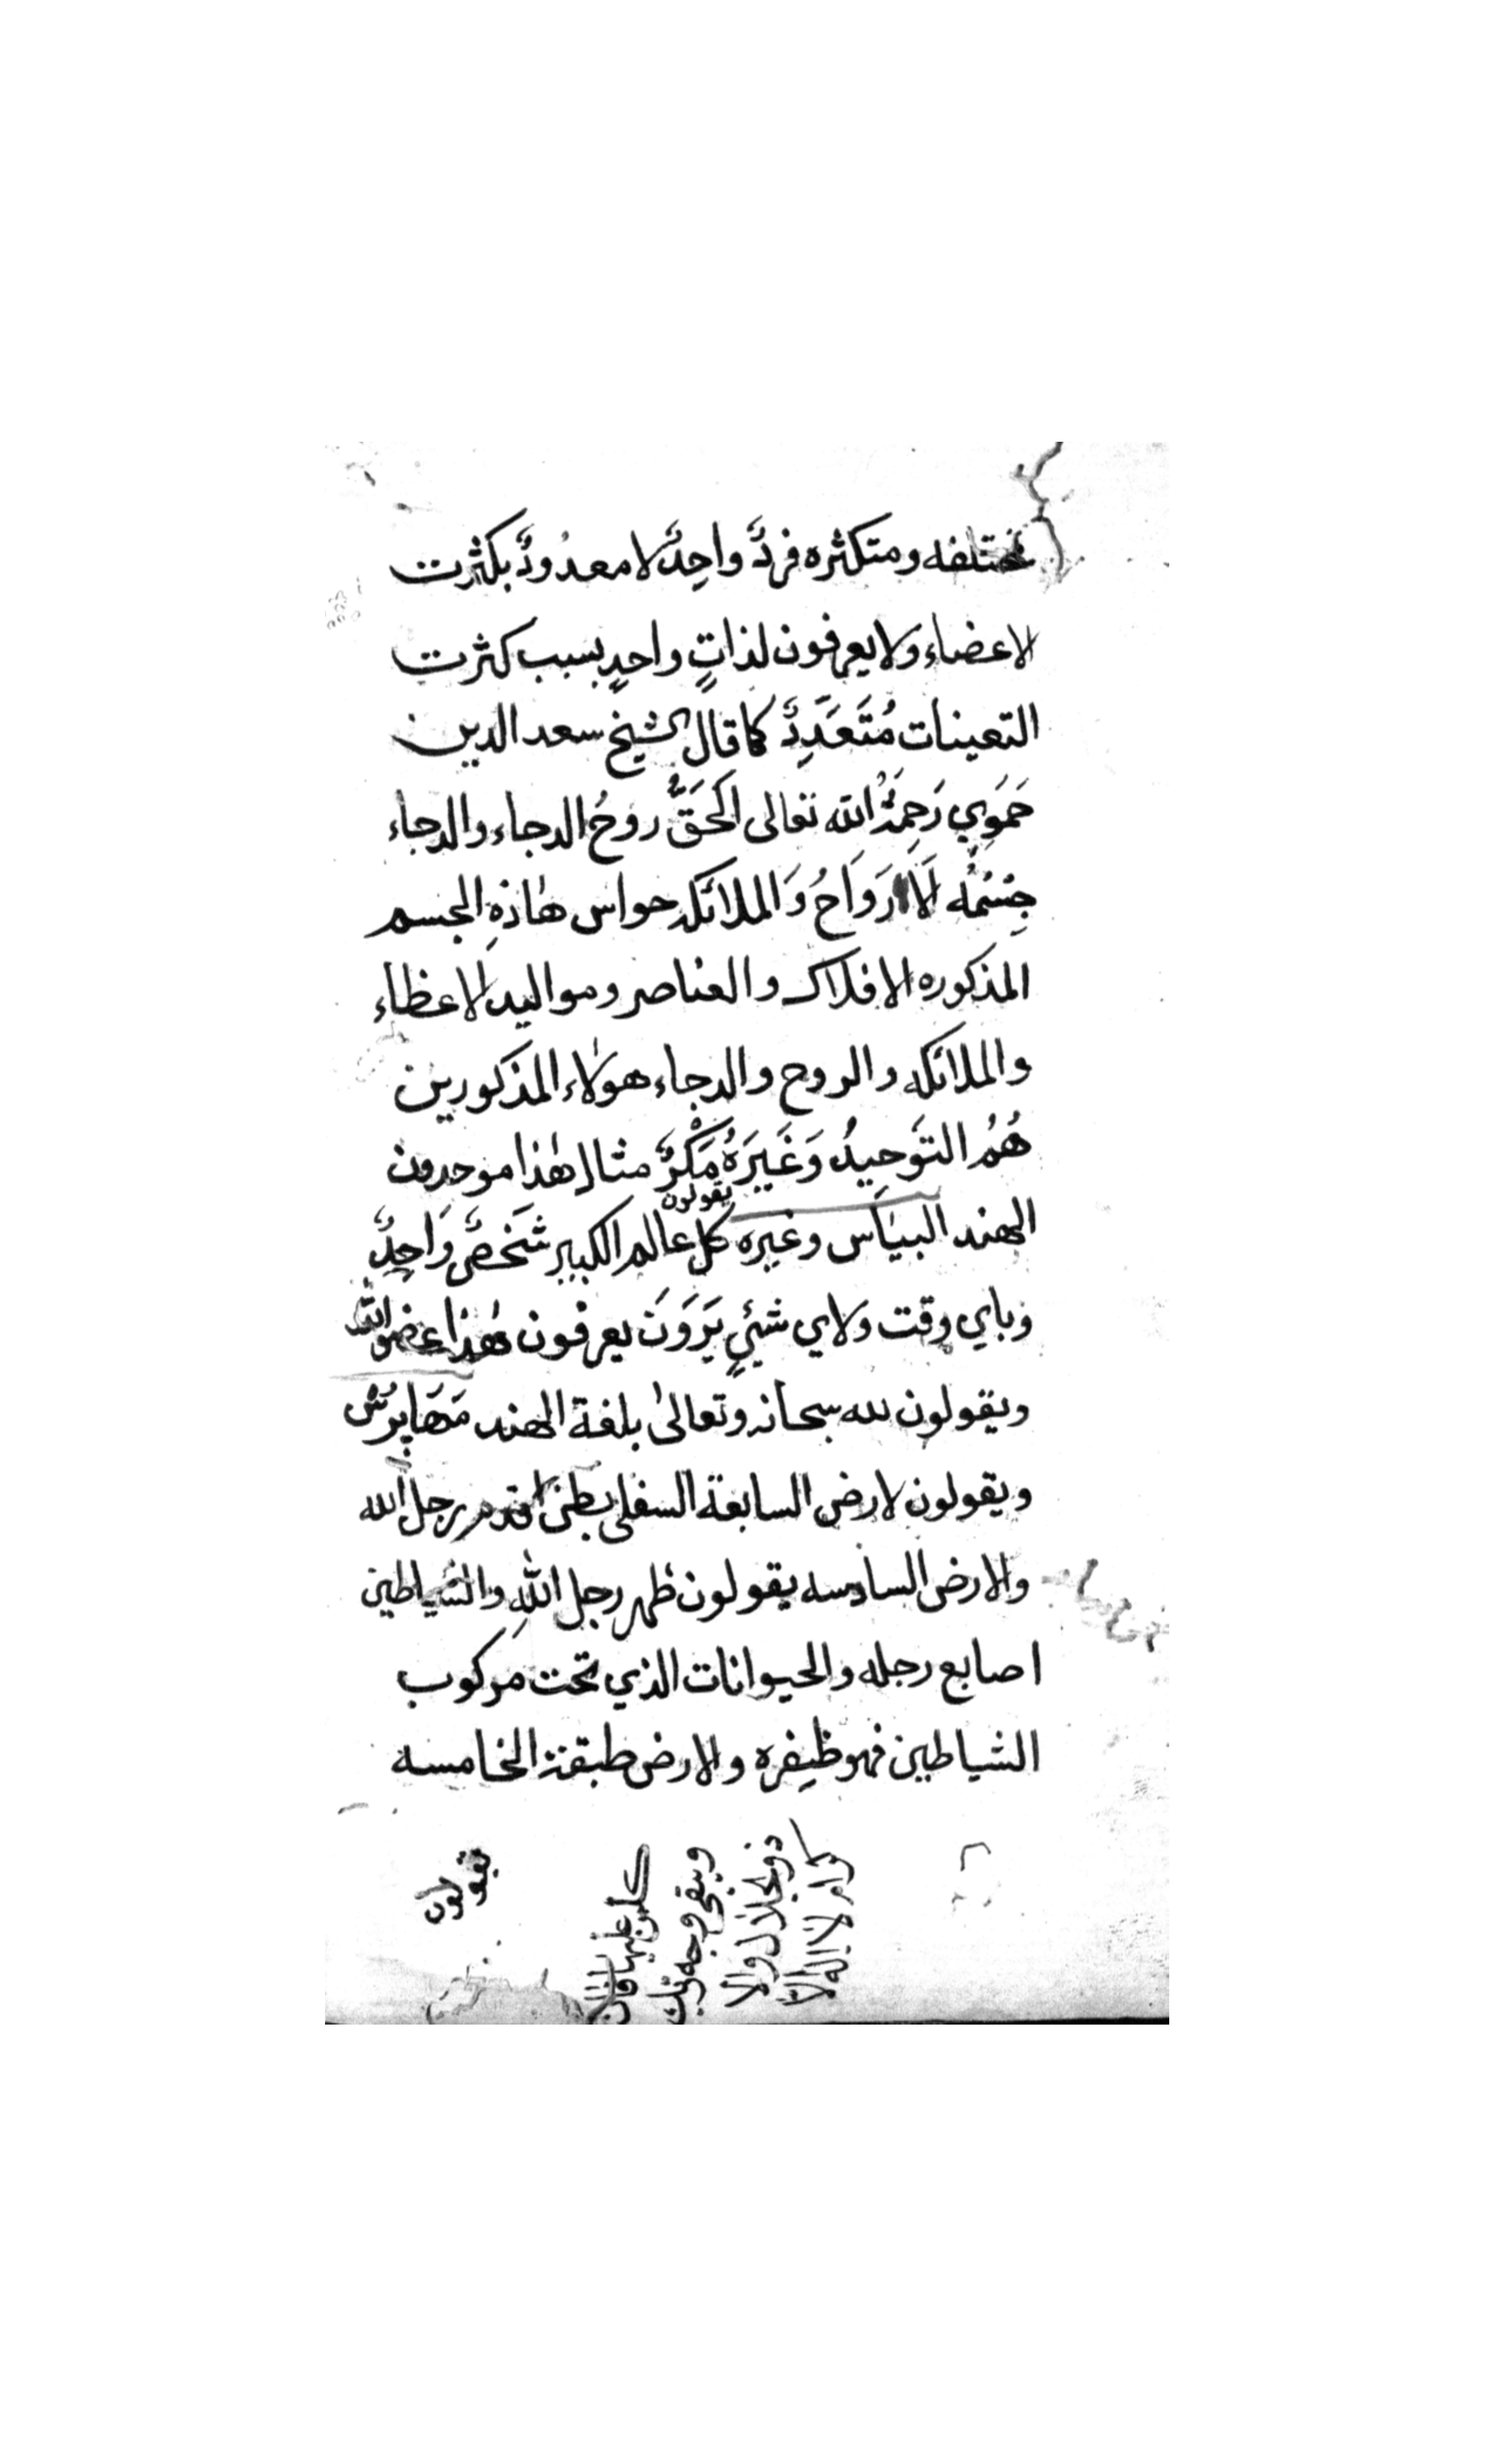 مختلفه ومتكثره فردٌ واحِدٌ لا معدودٌ بكثرت
لاعضاء ولا يعرفون لذاتٍ واحدٍ بسبب كثرت
التعينات مُتَعَدِدٌ كما قال الشيخ سعد الدين
حَمَوِي رَحِمَهُ الله تعالى الحَقُّ روحُ الدجاء والدجاء
جِسْمُه لَاارَوَاحُ وَالملائكه حواس هٰاذهِ الجسم
المذكوره الافلاك والعناصر ومواليد الاعظاء
والملائكه والروح والدجاء هولاء المذكورين
هُمُ التوَحيدُ وَغَيَرَهُ مَكْرٌ مثال هٰذا موحدون
الهند البيٰاس وغيره يقولون كل عالم الكبير شَخصٌ وَاحِدٌ
وباي وقت ولاي شئيٍ يَرَوَنَ يعرفون هٰذا عضو الله
ويقولون لله سبحانه وتعالىٰ بلغة الهند مَهَاپُرُش
ويقولون لارض السابعة السفلى بطن القدم رجل الله
والارض السادسه يقولون ظهر رجل اللهِ والشياطين
اصابع رجله والحيوانات الذي تحت مركوب
الشياطين فهو ظِيفره والارض طبقة الخامسه
يقولون
كل من عليها فان
ويبقى وجه ربك
ذو الجلال والا
كرام لا اله الا